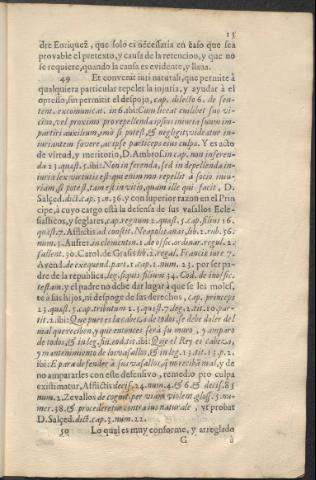 13
dre Enriquez, que solo es necessaria en caso que sea
provable el pretexto, y causa de la retencion, y que no
se requiere, quando la causa es evidente, y llana.
49 Et convenit iuri naturali, que permite à
qualquiera particular repeler la injusta, y ayudar à el
opreso, sin permitir el despojo, cap. dilecto 6. de sen-
tent. excomunicat. in 6. ibi: Cum liceat cuilibet suo vi-
cino, vel proximo pro repellenda ipsius iniuria suum im-
partiri auxilium, imò si potest, & negligit, videatur in-
iuriantem fovere, ac ipse particeps eius culpa. Y es acto
de virtud, y meritorio, D. Ambros. in cap. non inferen-
da 23. quæst. 3. ibi: Non in ferenda, sed in depellenda in-
iuria lex virtutis est: qui enim non repellit à socio iniu-
riam, si potest, tam est in vitio, quam ille qui facit. D.
Salçed. dict. cap. 3. n. 36. y con superior razon en el Prin
cipe, à cuyo cargo està la defensa de sus vasallos Ecle-
siasticos, y seglares, cap. regnum 2. quæst. 5. cap. filius 16.
quæst. 7. Afflictis ad constit. Neapolitanas, lib. 2. rub. 36.
num. 3. Aufrer. in clementin. 1. de offic. ordinar. regul. 2.
fallent. 30. Carol. de Grasis lib. 2. regal. Franciæ iure 7.
Avend. de exequend. part. 1. cap. 1. num. 23. por ser pa-
dre de la republica, leg. siquis filium 34. Cod. de inoffic.
testam. y el padre no debe dar lugar à que se les moles-
te à sus hijos, ni despoge de sus derechos, cap. princeps
23. quæst. 5. cap. tributum 23. quæst. 7. leg. 2. tit. 10. par-
tit. 2. ibi: Que pues es la cabeza de todos, se debe doler del
mal que reciben, y que entonces serà su muro, y amparo
de todos, & in leg. fin. eod. tit. ibi: Que el Rey es cabeza,
y mantenimiento de los vasallos, & in leg. 13. tit. 13. p. 2.
ibi: E para defender à sus vasallos, q no reciban mal, y de
no ampararles con este defensivo, remedio pro culpa
existimatur, Afflictis decis. 24. num. 4. & 6. & decis. 83
num. 2. Zevallos de cognit. per viam violent. gloss. 5. nu-
mer. 38. & procederetur contra ius naturale, vt probat
D. Salçed. dict. cap. 3. num. 22.
50 Lo qual es muy conforme, y arreglado
G à